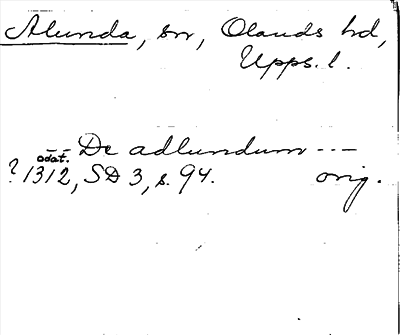 Alunda, sn, Olands hd,
Upps. l.
De adlundum ---
odat.
? 1312, SD 3, s. 94. orig.